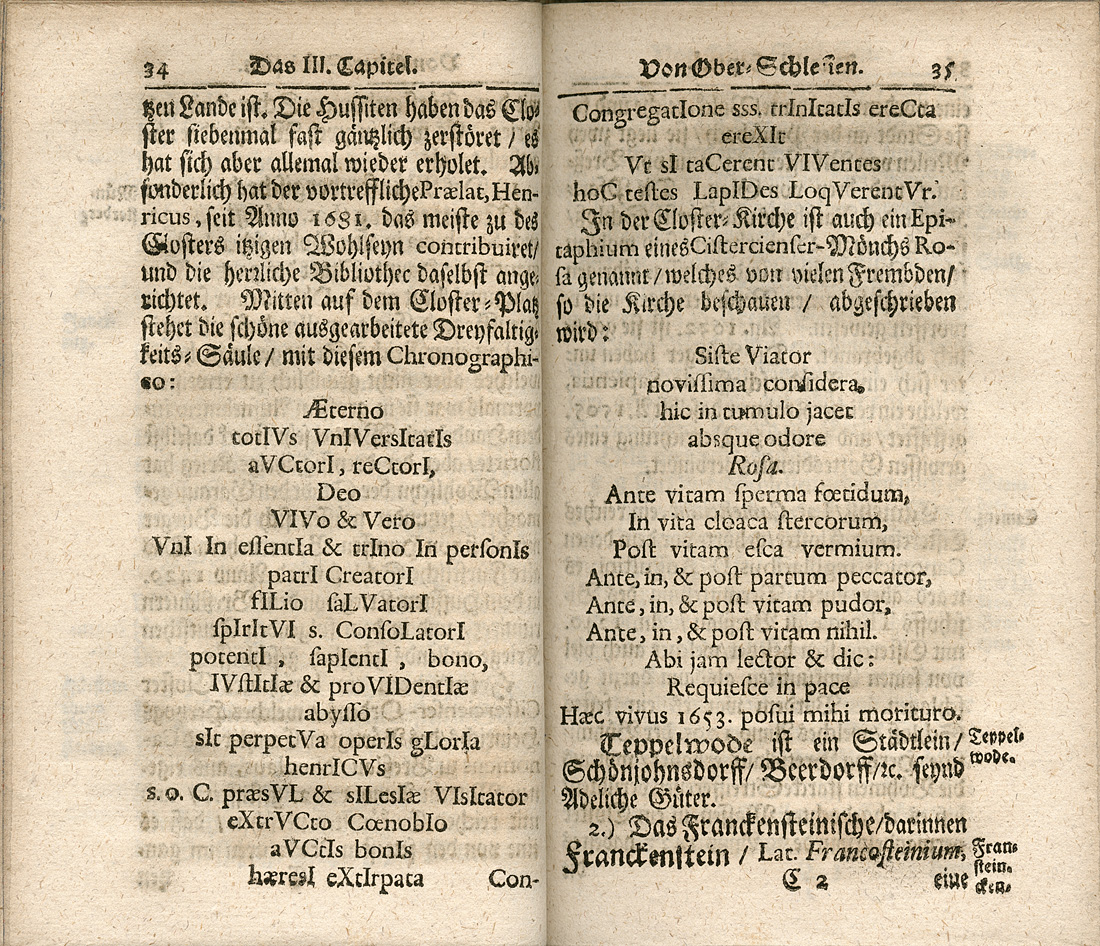 34 Das III. Capitel.
tzen Lande ist. Die Hussiten haben das Clo-
ster siebenmal fast gäntzlich zerstöret / es
hat sich aber allemal wieder erholet. Ab-
sonderlich hat der vortreffliche Prælat, Hen-
ricus, seit Anno 1681. das meiste zu des
Closters itzigen Wohlseyn contribuiret/
und die herrliche Bibliothec daselbst ange-
richtet. Mitten auf dem Closter-Platz
stehet die schöne ausgearbeitete Dreyfaltig-
keits-Säule / mit diesem Chronographi-
co:
Æterno
totIVs VnIVersItatIs
aVCtorI, reCtorI,
Deo
VIVo & Vero
VnI In essentIa & trIno In personIs
patrI CreatorI
fILio saLVatorI
spIrItVI s. ConsoLatorI
potentI, sapIentI, bono,
IVstItIæ & proVIDentIæ
abysso
sIt perpetVa operIs gLorIa
henrICVs
s. o. C. præsVL & sILesIæ VIsItator
eXtrVCto CœnobIo
aVCtIs bonIs
hæresI eXtIrpata Con-
Von Ober-Schlesien. 35
CongregatIone sss. trInItatIs ereCta
ereXIt
Vt sI taCerent VIVentes
hoC testes LapIDes LoqVerentVr.
In der Closter-Kirche ist auch ein Epi-
taphium eines Cistercienser-Mönchs Ro-
sa genannt / welches von vielen Frembden/
so die Kirche beschauen / abgeschrieben
wird:
Siste Viator
novissima considera,
hic in tumulo jacet
absque odore
Rosa.
Ante vitam sperma fœtidum,
In vita cloaca stercorum,
Post vitam esca vermium.
Ante, in, & post partum peccator,
Ante, in, & post vitam pudor,
Ante, in, & post vitam nihil.
Abi jam lector & dic:
Requiesce in pace
Hæc vivus 1653. posui mihi morituro.
Teppelwode ist ein Städtlein/
Teppel-
wode.
Schönjohnsdorff/ Beerdorff/ꝛc. seynd
Adeliche Güter.
2.) Das Franckensteinische/darinnen
Franckenstein / Lat. Francosteinium,
Fran-
stein-
cken-
C 2 eine